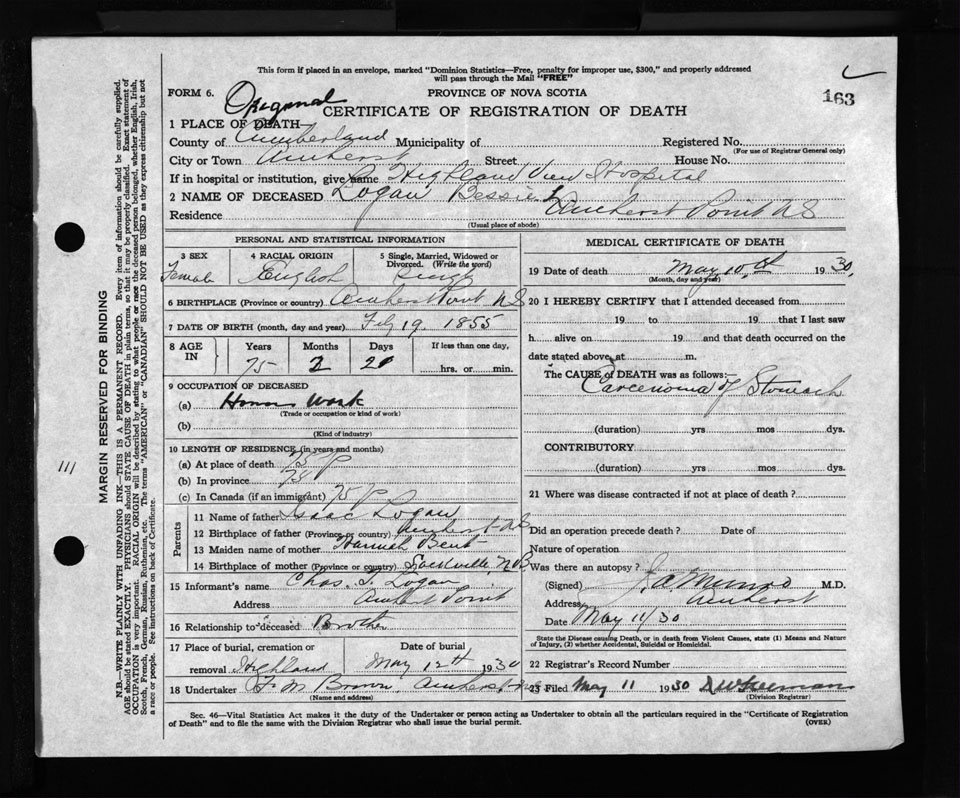 This form if placed in an envelope, marked "Dominion Statistics—Free, penalty for improper use, $300," and properly addressed
will pass through the Mail "FREE"
FORM 6.
PROVINCE OF NOVA SCOTIA
163
CERTIFICATE OF REGISTRATION OF DEATH
1 PLACE OF DEATH—
County of Cumberland Municipality of Registered No.
(For use of Registrar General only)
City or Town Amherst Street House No.
If in hospital or institution, give name Highland View Hospital
2 NAME OF DECEASED Logan Bessie
Residence Amherst Point NS
(Usual place of abode)
PERSONAL AND STATISTICAL INFORMATION
3 SEX 4 RACIAL ORIGIN 5 Single, Married, Widowed or
Divorced. (Write the word)
Female English Single
6 BIRTHPLACE (Province or country) Amherst Point NS
7 DATE OF BIRTH (month, day and year) Feby 19. 1855
8 AGE IN Years Months Days If less than one day,
75 2 21 hrs. or min.
9 OCCUPATION OF DECEASED
(a) House Work
(Trade or occupation or kind of work)
(b)
(Kind of industry)
10 LENGTH OF RESIDENCE (in years and months)
(a) At place of death 75
(b) In province 75
(c) In Canada (if an immigrant) 75
Parents
11 Name of father Isaac Logan
12 Birthplace of father (Province or country) Amherst NS
13 Maiden name of mother Hannah Bent
14 Birthplace of mother (Province or country) Sackville, NB
15 Informant's name Chas. T. Logan
Address Amherst Point
16 Relationship to deceased Brother
17 Place of burial, cremation or Date of burial
removal Highland May 12th 1930
18 Undertaker F. M. Brown, Amherst
(Name and address)
MEDICAL CERTIFICATE OF DEATH
19 Date of death May 10th 1930,
(Month, day and year)
20 I HEREBY CERTIFY that I attended deceased from
19 to 19 that I last saw
h alive on 19 and that death occurred on the
date stated above, at m.
The CAUSE of DEATH was as follows:
Carcenoma of Stomach
(duration) yrs mos dys.
CONTRIBUTORY
(duration) yrs mos dys.
21 Where was disease contracted if not at place of death?
Did an operation precede death? Date of
Nature of operation
Was there an autopsy?
(Signed) J. A. Munro M.D.
Address Amherst
Date May 11/30
State the Disease causing Death, or in death from Violent Causes, state (1) Means and Nature
of Injury, (2) whether Accidental, Suicidal or Homicidal.
22 Registrar's Record Number
23 Filed May 11 1930
(Division Registrar)
Sec. 46—Vital Statistics Act makes it the duty of the Undertaker or person acting as Undertaker to obtain all the particulars required in the "Certificate of Registration
of Death" and to file the same with the Division Registrar who shall issue the burial permit. (OVER)
MARGIN RESERVED FOR BINDING
N.B.—WRITE PLAINLY WITH UNFADING INK—THIS IS A PERMANENT RECORD. Every item of information should be carefully supplied.
AGE should be stated EXACTLY. PHYSICIANS should STATE CAUSE OF DEATH in plain terms, so that it may be properly classified. Exact statement of
OCCUPATION is very important. RACIAL ORIGIN will be described by stating to what people or race the deceased person belonged, whether English, Irish,
Scotch, French, German, Russian, Ruthenian, etc. The terms "AMERICAN" or "CANADIAN" SHOULD NOT BE USED as they express citizenship but not
a race or people. See instructions on back of Certificate.
111